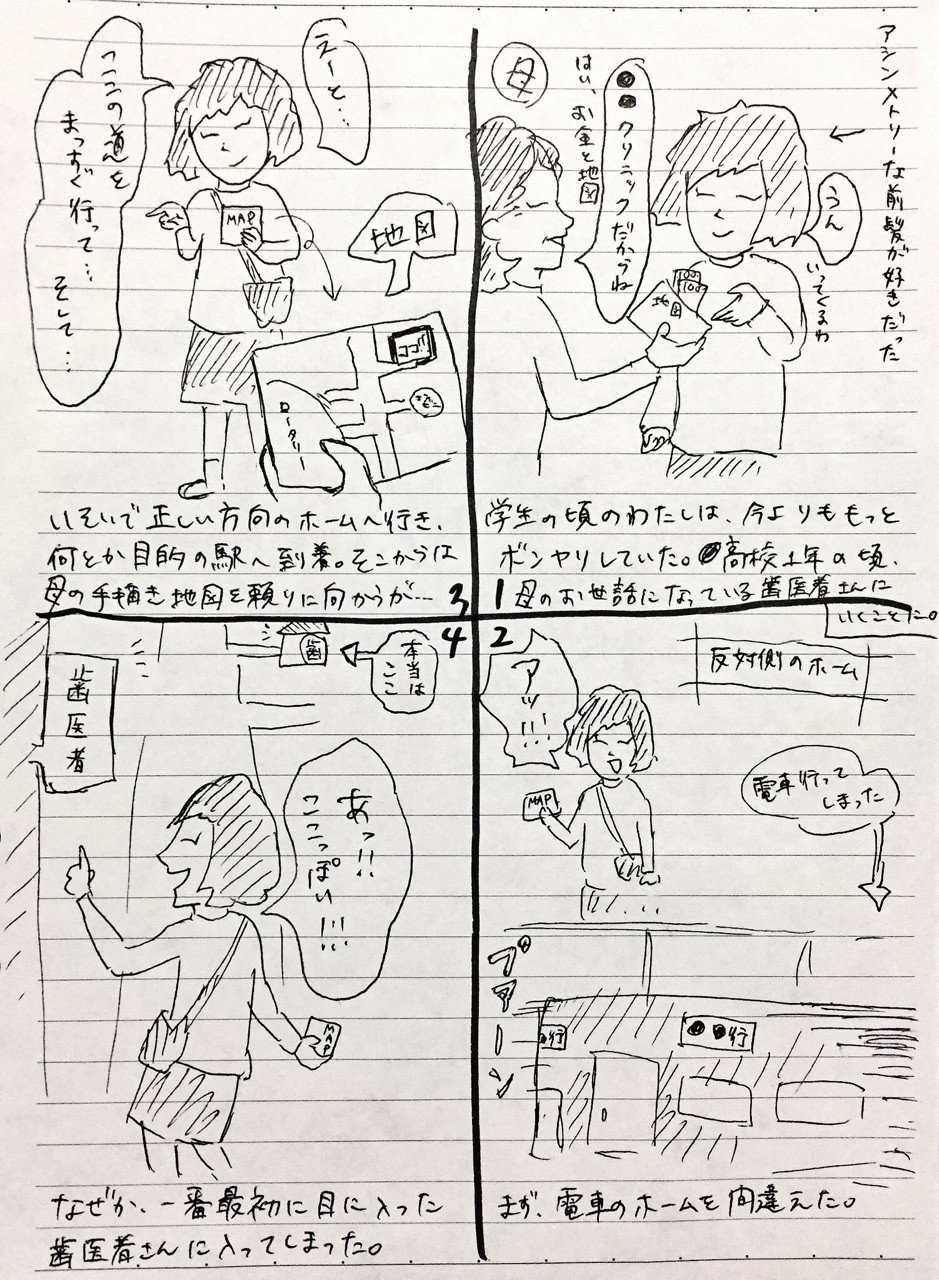 アシンメトリーな前髪が好きだった
母
●●クリニックだからね
はい、お金と地図
うん
いってくるわ
100
100
地図
学生の頃のわたしは、今よりももっと
ボンヤリしていた。高校1年の頃、
母のお世話になっている歯医者さんに
いくことに。
1
2
アッ!!!
反対側のホーム
MAP
電車行って
しまった
プァーン
●行
●●行
まず、電車のホームを間違えた。
えーと…
ここの道を
まっすぐ行って…
そして…
MAP
地図
ココ!!
ロータリー
いそいで正しい方向のホームへ行き、
何とか目的の駅へ到着。そこからは
母の手描き地図を頼りに向かうが…
3
4
歯
本当は
ここ
歯医者
あっ!!
ここっぽい!!!
MAP
なぜか、一番最初に目に入った
歯医者さんに入ってしまった。